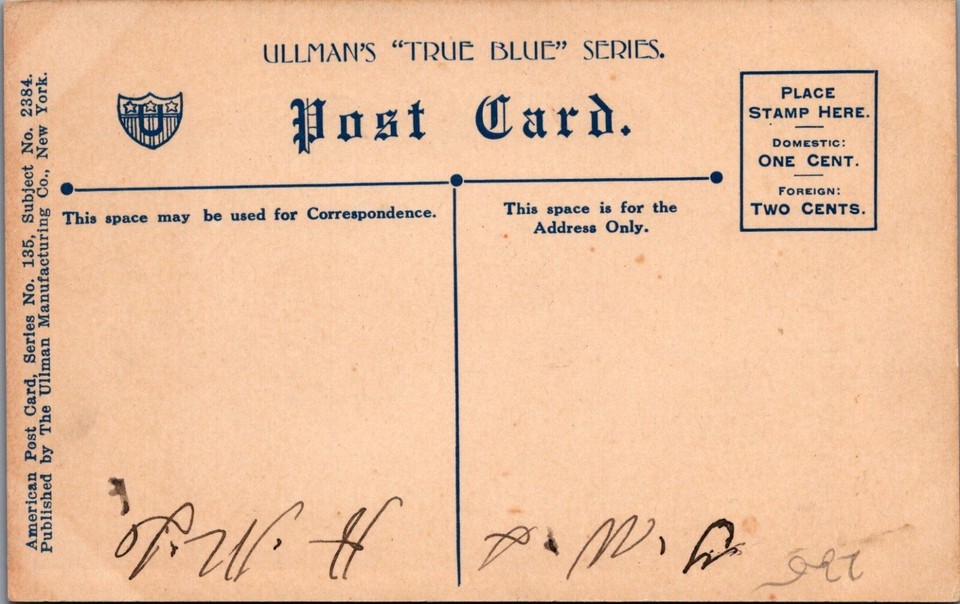 ULLMAN'S "TRUE BLUE" SERIES.
U
Post Card.
PLACE
STAMP HERE.
DOMESTIC:
ONE CENT.
FOREIGN:
TWO CENTS.
This space may be used for Correspondence.
This space is for the
Address Only.
American Post Card, Series No. 135, Subject No. 2384.
Published by The Ullman Manufacturing Co., New York.